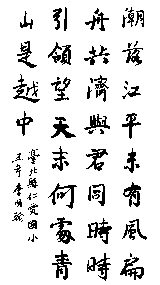 潮落江平未有風扁
舟共濟與君同時時
引領望天末何處青
山是越中
臺北縣仁愛國小
五年李明